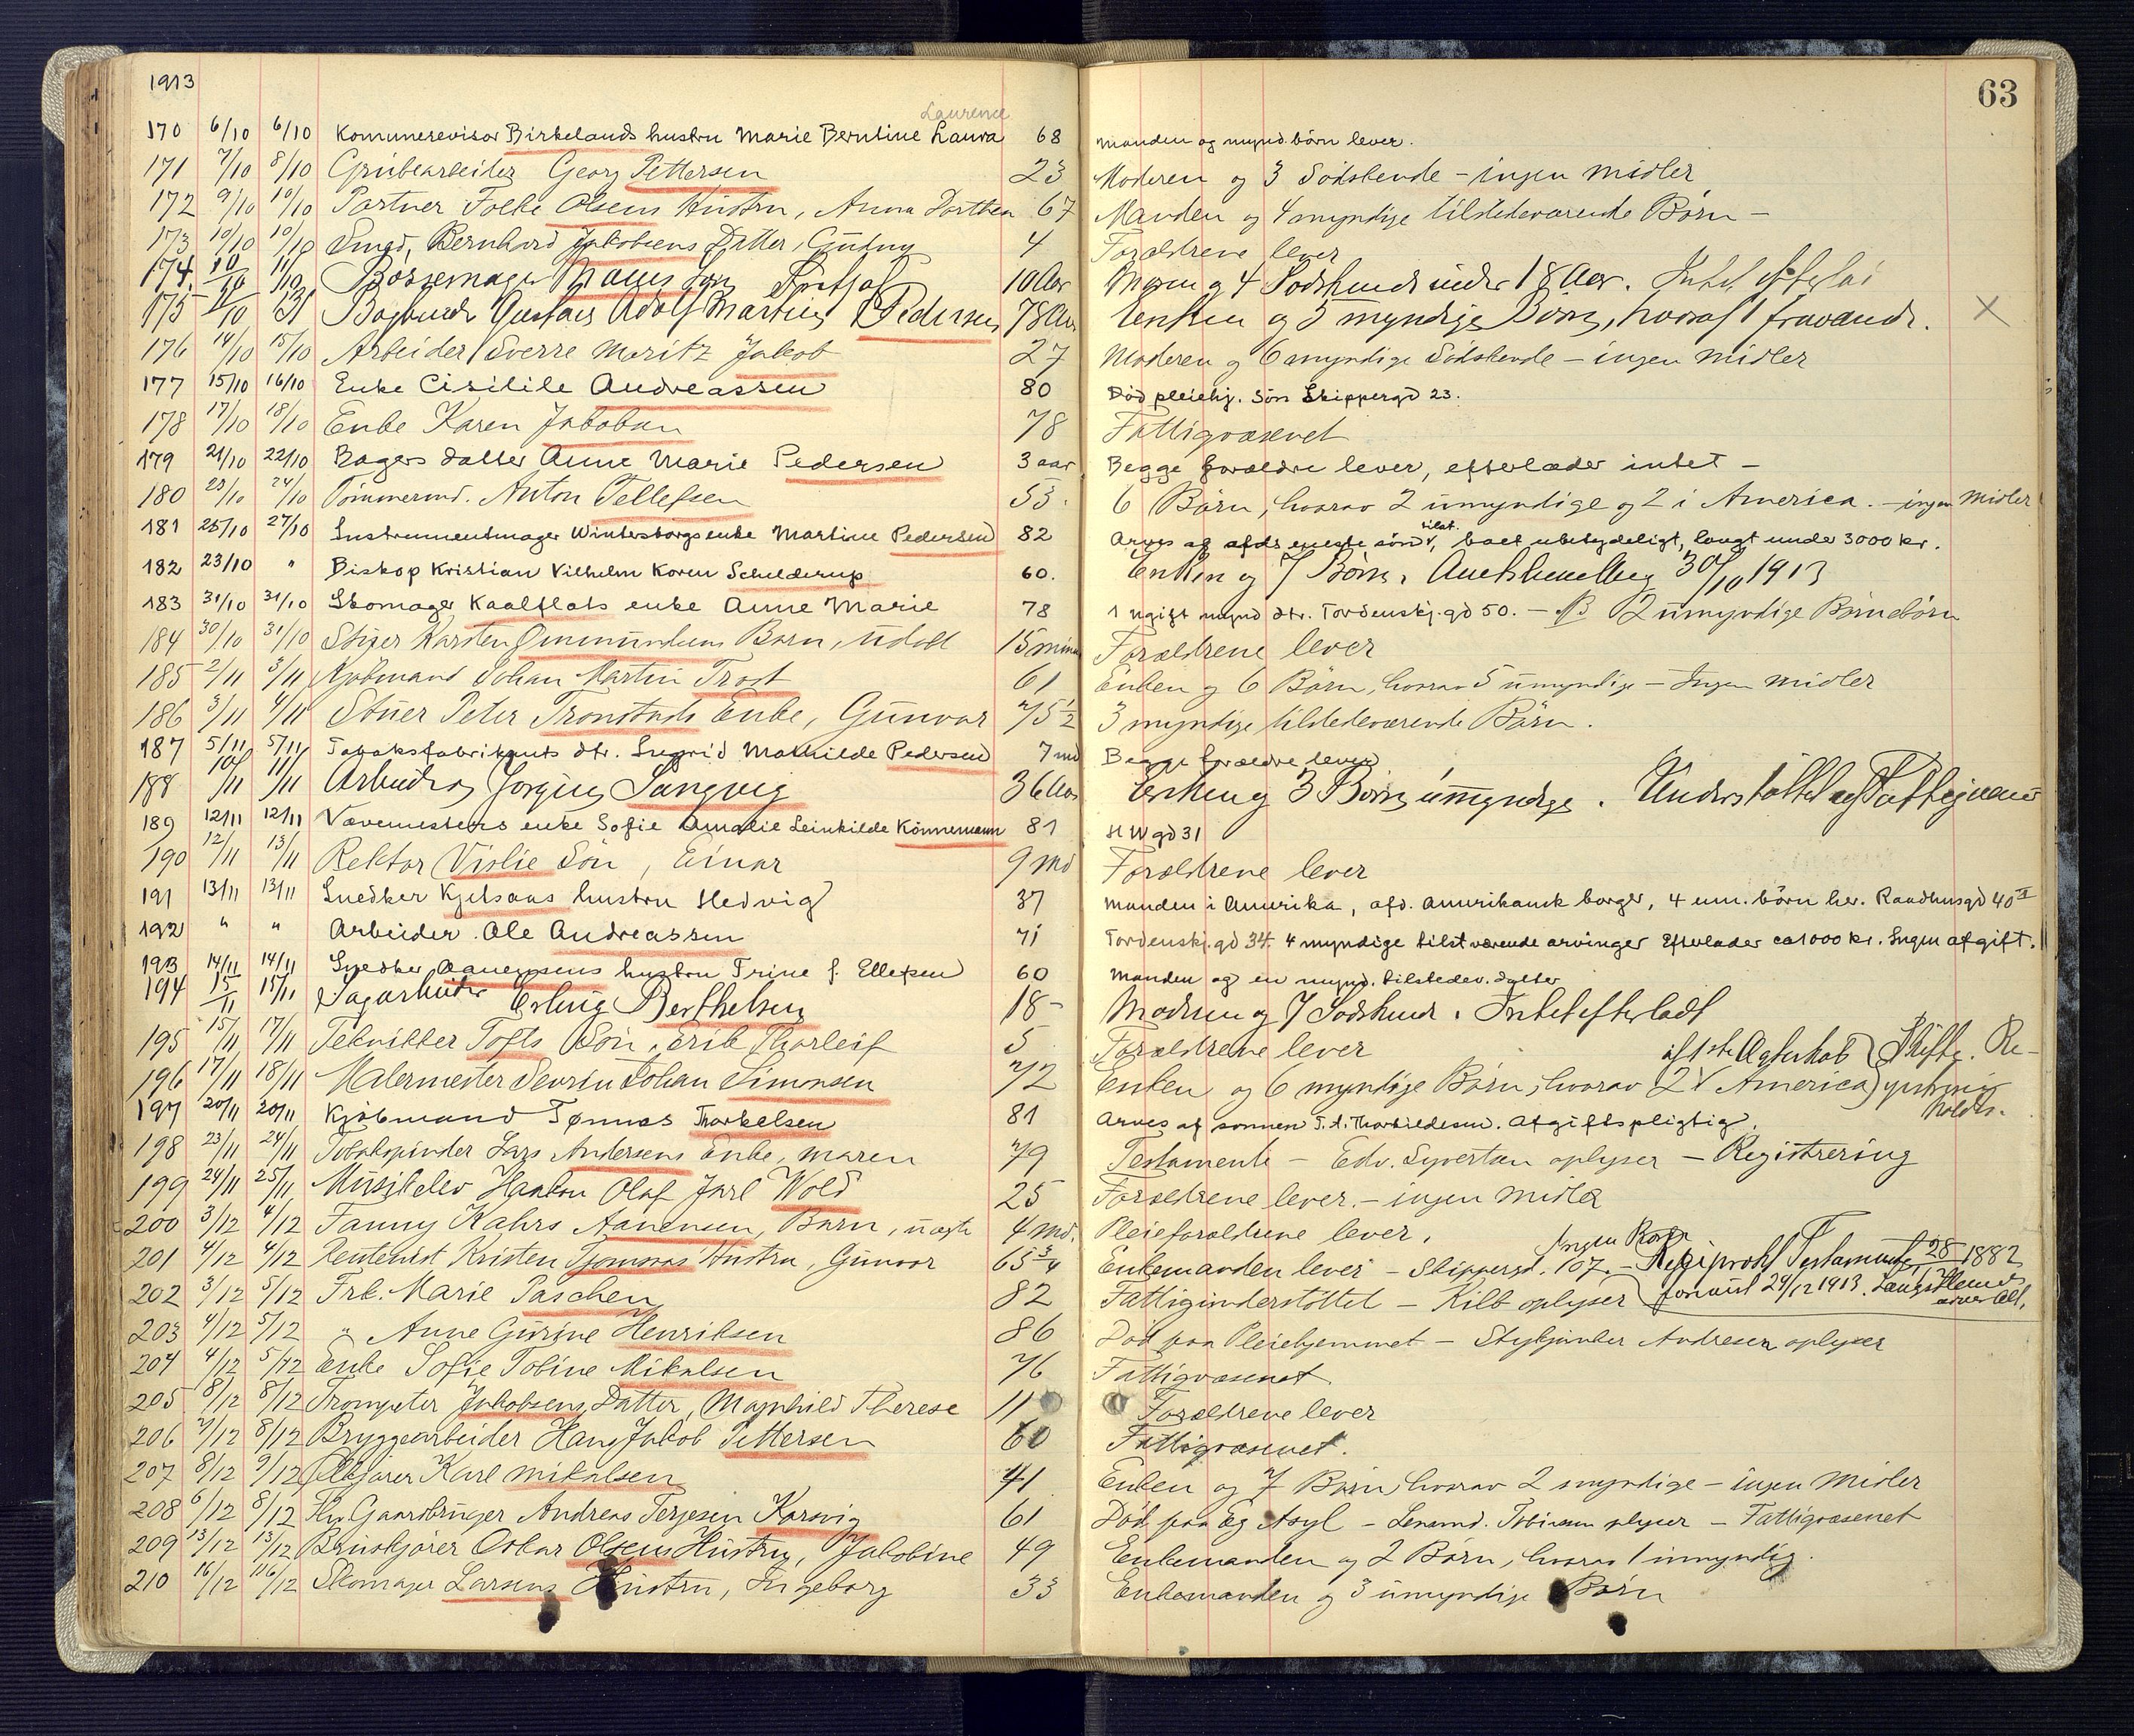 1913
63
Laurence
170 6/10 6/10 Kommunerevisor Birkelands hustru Marie Berntine Laura 68 Manden og mynd. börn lever.
171 7/10 8/10 Grubearbeider Georg Pettersen 23 Moderen og 3 Södskende - ingen midler
172 9/10 10/10 Partner Folke Olsens Hustru, Anna Dorthea 67 Manden og 4 myndige tilstedeværende Börn -
173 10/10 10/10 Smed, Bernhard Jakobsens Datter, Gudny 4 Forældrene lever
174. 10/10 11/10 Börsemager Sön 10 Aar og 4 Sødskende under 18 Aar. Intet efterlad
175 11/10 13/ Gustav Adolf Martin Pedersen 78 Aar Enken og 5 myndige Börn, hvoraf 1 fraværende. X
176 14/10 15/10 Arbeider Sverre Moritz Jakob 27 Moderen og 6 myndige Södskende - ingen midler
177 15/10 16/10 Enke Cisilile Andreassen 80 Död pleiehj. Sön Skippergd 23.
178 17/10 18/10 Enke Karen Jakobsen 78 Fattigvæsenet
179 21/10 22/10 Bagers datter Anne Marie Pedersen 3 aar Begge forældre lever, efterlader intet -
180 23/10 24/10 Tömmermd. Anton Tellefsen 53. 6 Börn, hvorav 2 umyndige og 2 i America. - ingen Midler
181 25/10 27/10 Instrumentmager Wintersborgs enke Martine Pedersen 82 Arves af afdr. eneste sön, boet ubetydeligt, langt under 3000 kr.
182 23/10 " Biskop Kristian Vilhelm Koren Schelderup 60. Enken og 7 Börn. 30/10 1913
183 31/10 31/10 Skomager Kaalflats enke Anne Marie 78 1 ugift mynd dtr. Tordenskj. gd 50. - NB 2 umyndige Barnebörn
184 30/10 31/10 Stuer Karsten Gummundsens Barn, udöbt 15 min Forældrene lever
185 2/11 3/11 Kjöbmand Johan Martin Trost 61 Enken og 6 Börn, hvorav 5 umyndige - Ingen midler
186 3/11 4/11 Stuer Peter Tronstads Enke, Gunvor 75 1/2 3 myndige tilstedeværende Börn.
187 5/11 5/11 Tobaksfabrikants dtr. Sigrid Mathilde Pedersen 7 md Begge forældre lever
188 10/11 11/11 Arbeider Jørgen Langvig 36 Aar Enken og 3 Börn umyndige. Understöttet af Fattigvæsenet
189 12/11 12/11 Vævemesters enke Sofie Amalie Leinkilde Könnemann 81 H W gd 31
190 12/11 13/11 Rektor Vislie Sön, Einar 9 md Forældrene lever
191 13/11 13/11 Snedker Kjelsaas hustru Hedvig 37 Manden i Amerika, afd. amerikansk borger, 4 um. börn her. Raadhusgd 40 II
192 " " Arbeider Ole Andreassen 71 Tordenskj. gd 34. 4 myndige tilstværende arvinger Efterlader ca 1000 kr. Ingen afgift.
193 14/11 14/11 Snedker Aanensens hustru Trine f. Ellefsen 60 Manden og en mynd. tilstedev. datter
194 15/11 15/11 Sagarbeider Erling Berthelsen 18 - Moderen og 7 Sødskende. Intet efterladt
195 15/11 17/11 Tekniker Tofts Sön, Erik Thorleif 5 Forældrene lever
af 1ste Ægteskab Skifte. Re-
196 17/11 18/11 Malermester Severin Johan Simonsen 72 Enken og 6 myndige Börn, hvorav 2 i America gistrering
holdes.
197 20/11 20/11 Kjöbmand Tønnes Thorkelsen 81 Arves af sønnen T. A. Thorkildsen. Afgiftspligtig.
198 23/11 24/11 Tobakspinder Lars Andersens Enke, Maren 79 Testamente - Edv. Syvertsen oplyser - Registrering
199 24/11 25/11 Musikelev Haakon Olaf Jarl Wold 25 Forældrene lever. - ingen midler
200 3/12 4/12 Fanny Kahrs Aanensen, Barn, uægte 4 md. Pleieforældrene lever.
Ingen Börn
201 4/12 4/12 Rentenist Kristen Tjomsaas Hustru, Gunvor 65 3/4 Enkemanden lever - Skippergd. 107. - Reciprokt Testamente 28/11 1882
202 3/12 5/12 Frk. Marie Paschen 82 Fattigunderstöttet - Kilb oplyser
203 4/12 5/12 " Anne Gurine Henriksen 86 Död paa Pleiehjemmet - Andresen oplyser
204 4/12 5/12 Enke Sofie Tobine Mikalsen 76 Fattigvæsenet
205 8/12 8/12 Trompeter Jakobsens Datter, Magnhild Therese 11 Forældrene lever
206 7/12 8/12 Bryggearbeider Hans Jakob Pettersen 60 Fattigvæsenet.
207 8/12 9/12 Ölkjörer Karl Mikalsen 41 Enken og 7 Börn, hvorav 2 myndige - ingen Midler
208 6/12 8/12 Fhv. Gaardbruger Andreas Terjesen Karsvig 61 Död paa Eg Asyl - Lensmd. Tobiasen oplyser - Fattigvæsenet
209 13/12 13/12 Bruskjörer Oskar Olsens Hustru, Jakobine 49 Enkemanden og 2 Börn, hvorav 1 umyndig.
210 16/12 16/12 Skomager Larsens Hustru, Ingeborg 33 Enkemanden og 3 umyndige Börn